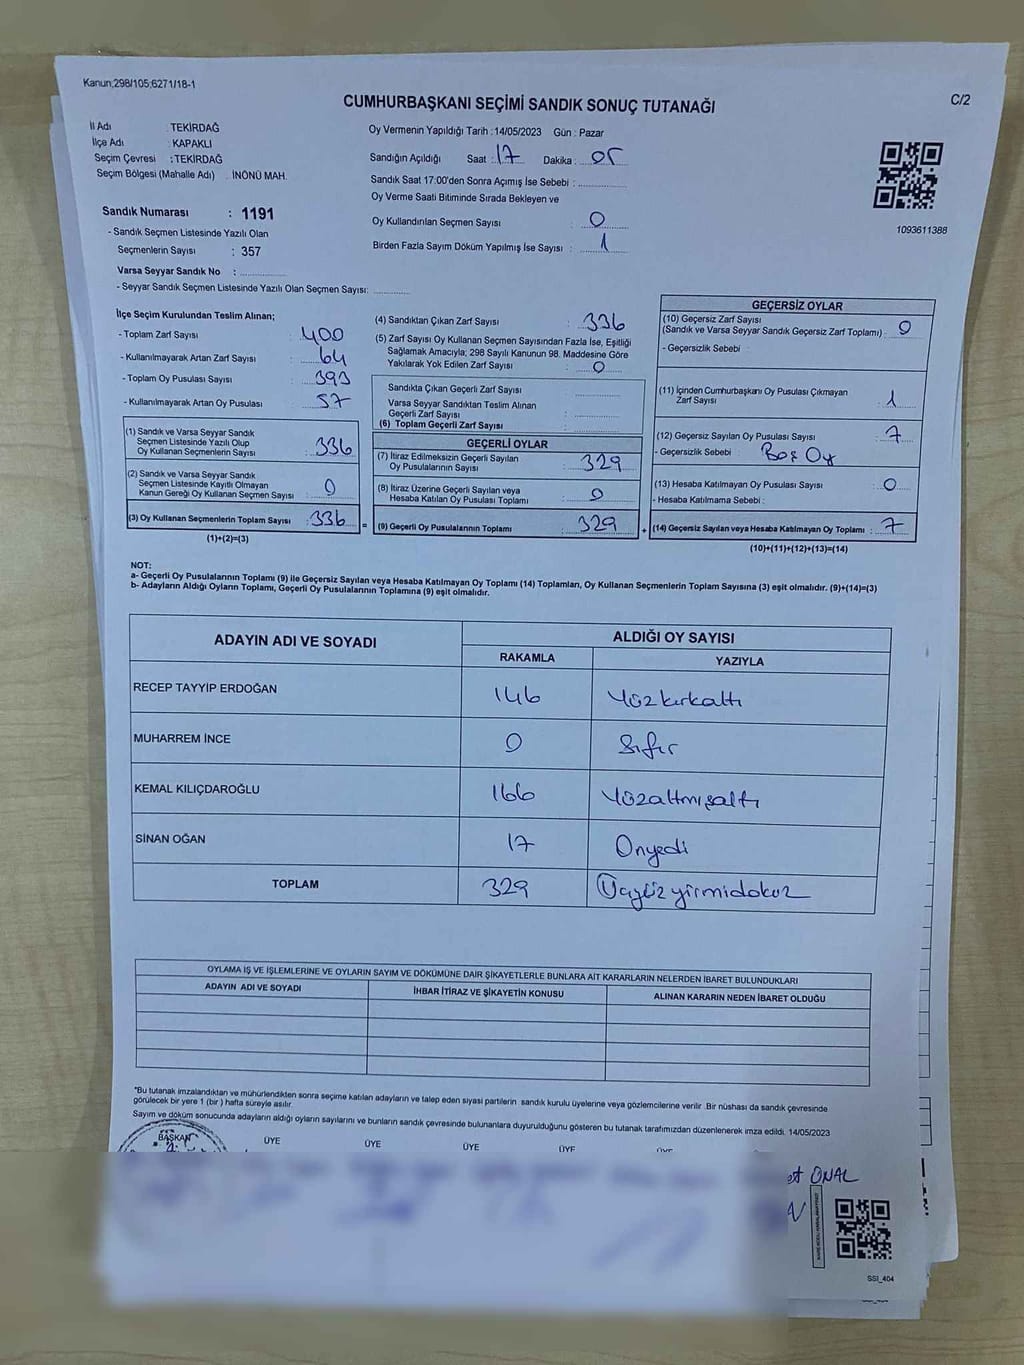 Kanun;298/105;6271/18-1
C/2
CUMHURBAŞKANI SEÇİMİ SANDIK SONUÇ TUTANAĞI
İl Adı : TEKİRDAĞ
İlçe Adı : KAPAKLI
Seçim Çevresi : TEKİRDAĞ
Seçim Bölgesi (Mahalle Adı) : İNÖNÜ MAH.
Sandık Numarası : 1191
- Sandık Seçmen Listesinde Yazılı Olan
Seçmenlerin Sayısı : 357
Varsa Seyyar Sandık No :
- Seyyar Sandık Seçmen Listesinde Yazılı Olan Seçmen Sayısı:
Oy Vermenin Yapıldığı Tarih : 14/05/2023 Gün : Pazar
Sandığın Açıldığı Saat : 17 Dakika : 05
Sandık Saat 17:00'den Sonra Açımış İse Sebebi :
Oy Verme Saati Bitiminde Sırada Bekleyen ve
Oy Kullandırılan Seçmen Sayısı : 0
Birden Fazla Sayım Döküm Yapılmış İse Sayısı : 1
1093611388
İlçe Seçim Kurulundan Teslim Alınan;
- Toplam Zarf Sayısı : 400
- Kullanılmayarak Artan Zarf Sayısı : 64
- Toplam Oy Pusulası Sayısı : 393
- Kullanılmayarak Artan Oy Pusulası : 57
(1) Sandık ve Varsa Seyyar Sandık
Seçmen Listesinde Yazılı Olup
Oy Kullanan Seçmenlerin Sayısı : 336
(2) Sandık ve Varsa Seyyar Sandık
Seçmen Listesinde Kayıtlı Olmayan
Kanun Gereği Oy Kullanan Seçmen Sayısı : 0
(3) Oy Kullanan Seçmenlerin Toplam Sayısı : 336 =
(1)+(2)=(3)
(4) Sandıktan Çıkan Zarf Sayısı : 336
(5) Zarf Sayısı Oy Kullanan Seçmen Sayısından Fazla İse, Eşitliği
Sağlamak Amacıyla; 298 Sayılı Kanunun 98. Maddesine Göre
Yakılarak Yok Edilen Zarf Sayısı : 0
Sandıkta Çıkan Geçerli Zarf Sayısı :
Varsa Seyyar Sandıktan Teslim Alınan
Geçerli Zarf Sayısı :
(6) Toplam Geçerli Zarf Sayısı :
GEÇERLİ OYLAR
(7) İtiraz Edilmeksizin Geçerli Sayılan
Oy Pusulalarının Sayısı : 329
(8) İtiraz Üzerine Geçerli Sayılan veya
Hesaba Katılan Oy Pusulası Toplamı : 0
(9) Geçerli Oy Pusulalarının Toplamı : 329 +
GEÇERSİZ OYLAR
(10) Geçersiz Zarf Sayısı
(Sandık ve Varsa Seyyar Sandık Geçersiz Zarf Toplamı) : 0
- Geçersizlik Sebebi :
(11) İçinden Cumhurbaşkanı Oy Pusulası Çıkmayan
Zarf Sayısı : 1
(12) Geçersiz Sayılan Oy Pusulası Sayısı : 7
- Geçersizlik Sebebi : Boş Oy
(13) Hesaba Katılmayan Oy Pusulası Sayısı : 0
- Hesaba Katılmama Sebebi :
(14) Geçersiz Sayılan veya Hesaba Katılmayan Oy Toplamı : 7
(10)+(11)+(12)+(13)=(14)
NOT:
a- Geçerli Oy Pusulalarının Toplamı (9) ile Geçersiz Sayılan veya Hesaba Katılmayan Oy Toplamı (14) Toplamları, Oy Kullanan Seçmenlerin Toplam Sayısına (3) eşit olmalıdır. (9)+(14)=(3)
b- Adayların Aldığı Oyların Toplamı, Geçerli Oy Pusulalarının Toplamına (9) eşit olmalıdır.
ADAYIN ADI VE SOYADI
ALDIĞI OY SAYISI
RAKAMLA YAZIYLA
RECEP TAYYİP ERDOĞAN 146 Yüzkırkaltı
MUHARREM İNCE 0 Sıfır
KEMAL KILIÇDAROĞLU 166 Yüzaltmışaltı
SİNAN OĞAN 17 Onyedi
TOPLAM 329 Üçyüz yirmidokuz
OYLAMA İŞ VE İŞLEMLERİNE VE OYLARIN SAYIM VE DÖKÜMÜNE DAİR ŞİKAYETLERLE BUNLARA AİT KARARLARIN NELERDEN İBARET BULUNDUKLARI
ADAYIN ADI VE SOYADI İHBAR İTİRAZ VE ŞİKAYETİN KONUSU ALINAN KARARIN NEDEN İBARET OLDUĞU
*Bu tutanak imzalandıktan ve mühürlendikten sonra seçime katılan adayların ve talep eden siyasi partilerin sandık kurulu üyelerine veya gözlemcilerine verilir. Bir nüshası da sandık çevresinde
görülecek bir yere 1 (bir) hafta süreyle asılır.
Sayım ve döküm sonucunda adayların aldığı oyların sayılarını ve bunların sandık çevresinde bulunanlara duyurulduğunu gösteren bu tutanak tarafımızdan düzenlenerek imza edildi. 14/05/2023
BAŞKAN ÜYE ÜYE ÜYE ÜYE
et ÖNAL
SSI_404